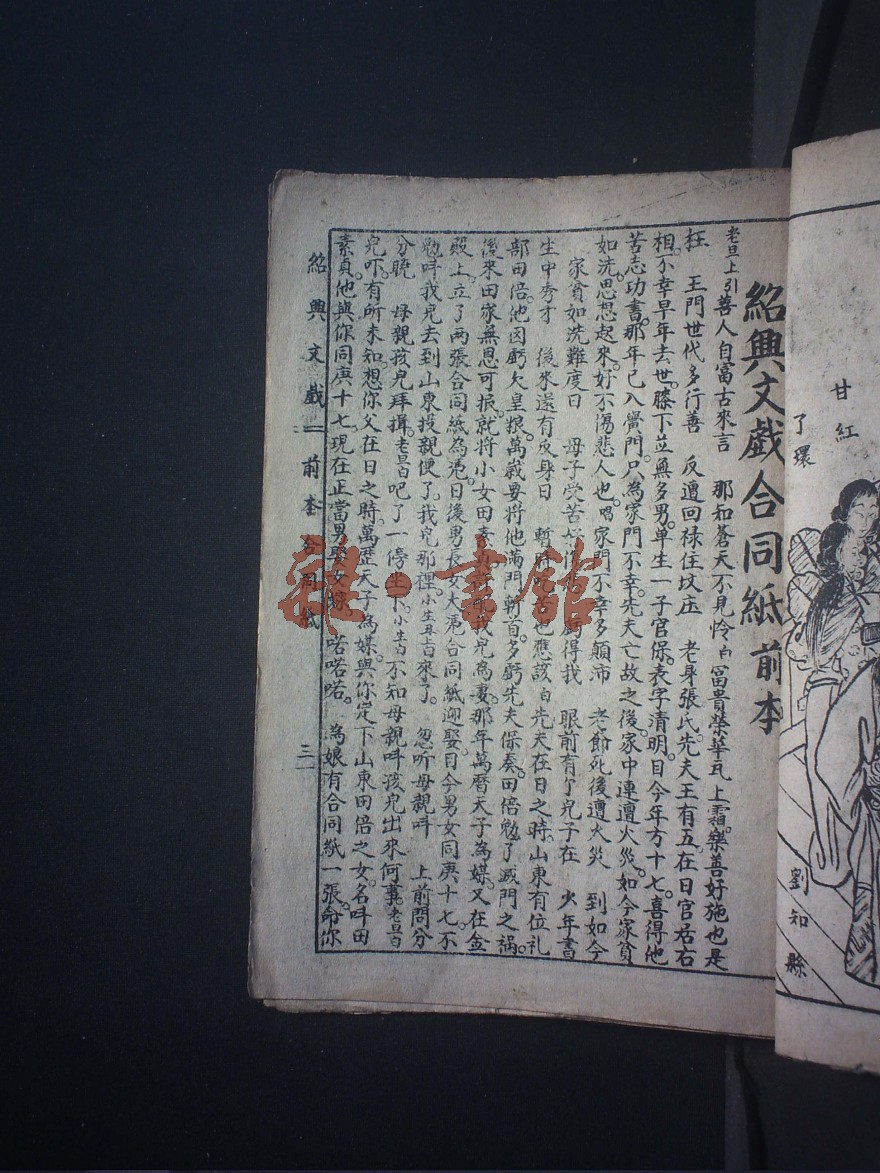 甘紅
了環
劉知縣
紹興文戲合同紙前本
老旦上引善人自富古來言 那知蒼天不見怜白富貴榮華瓦上霜樂善好施也是
枉 王門世代多行善 反遭回禄住坟庄 老身張氏先夫王有五在日官居右
相不幸早年去世膝下並無多男单生一子官保表字清明目今年方十七喜得他
苦志功書那年已入黌門只為家門不幸先夫亡故之後家中連遭火災如今家貧
如洗思想起來好不傷悲人也唱家門不幸多顛沛 老爺死後遭火災 到如今
家貧如洗難度日 母子受苦 得我 眼前有了兒子在 少年書
生中秀才 後來還有反身日 暫時 也應該白先夫在日之時山東有位礼
部田倍他因虧欠皇粮萬歲要將他滿門斬首多虧先夫保奏田倍勉了滅門之禍
後來田家無恩可报就將小女田素貞 我兒為妻那年萬曆天子為媒又在金
殿上立了两張合同紙為凴日後男長女大凴合同紙迎娶目今男女同庚十七不
勉呌我兒去到山東投親便了我兒那裡小生丑旨來了 忽听母親呌 上前問分
分曉 母親孩兒拜揖老旦白吧了一傍坐下小生白不知母親呌孩兒出來何事老旦白
兒吓有所未知想你父在日之時萬歷天子為媒與你定下山東田倍之女名呌田
素貞他與你同庚十七現在正當男娶女嫁喏喏喏 為娘有合同紙一張命你
紹興文戲 前本合同紙 三
雜·書館